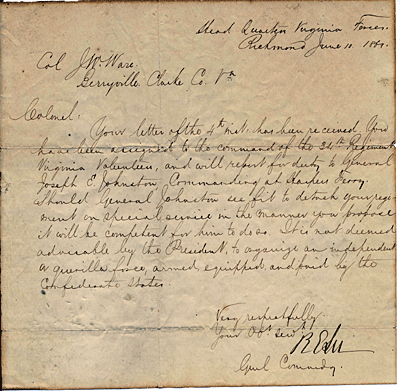 Head Quarters Virginia Forces.
Richmond June 10. 1861.
Col J. W. Ware.
Berryville, Clarke Co. Va
Colonel.
Your letter of the 4th inst. has been received. You
have been assigned to the command of the 34th Regiment
Virginia Volunteers, and will report for duty to General
Joseph E. Johnston Commanding at Harpers Ferry.
Should General Johnston see fit to detach your regi-
ment on special service in the manner you propose
it will be competent for him to do so. It is not deemed
advisable by the President, to organize an independent
or guerilla force, armed, equipped, and paid by the
Confederate States.
Very respectfully
Your Obt. Servt.
R E Lee
Genl Commdg.